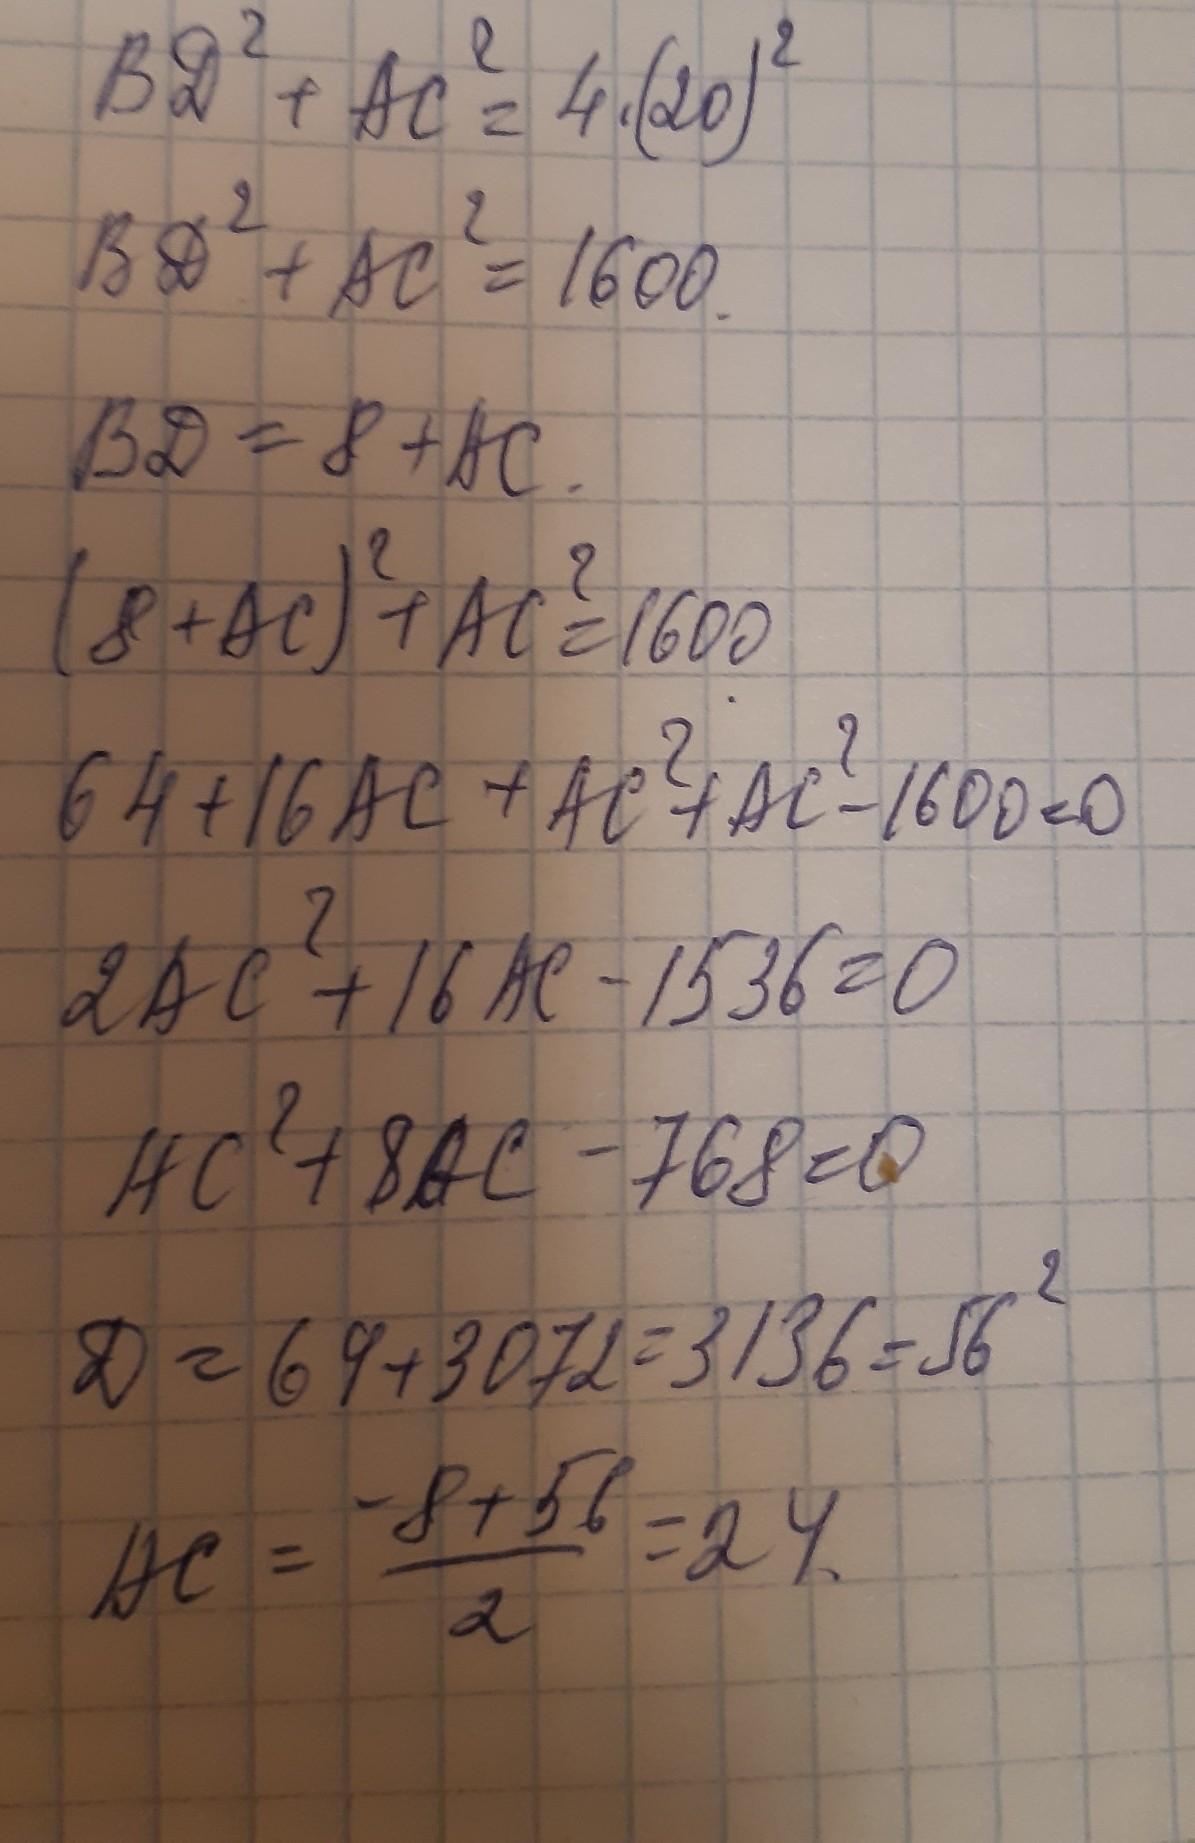 BD² + AC² = 4·(20)²
BD² + AC² = 1600.
BD = 8 + AC.
(8 + AC)² + AC² = 1600
64 + 16AC + AC² + AC² - 1600 = 0
2AC² + 16AC - 1536 = 0
AC² + 8AC - 768 = 0
D = 64 + 3072 = 3136 = 56²
AC = (-8 + 56)/2 = 24.